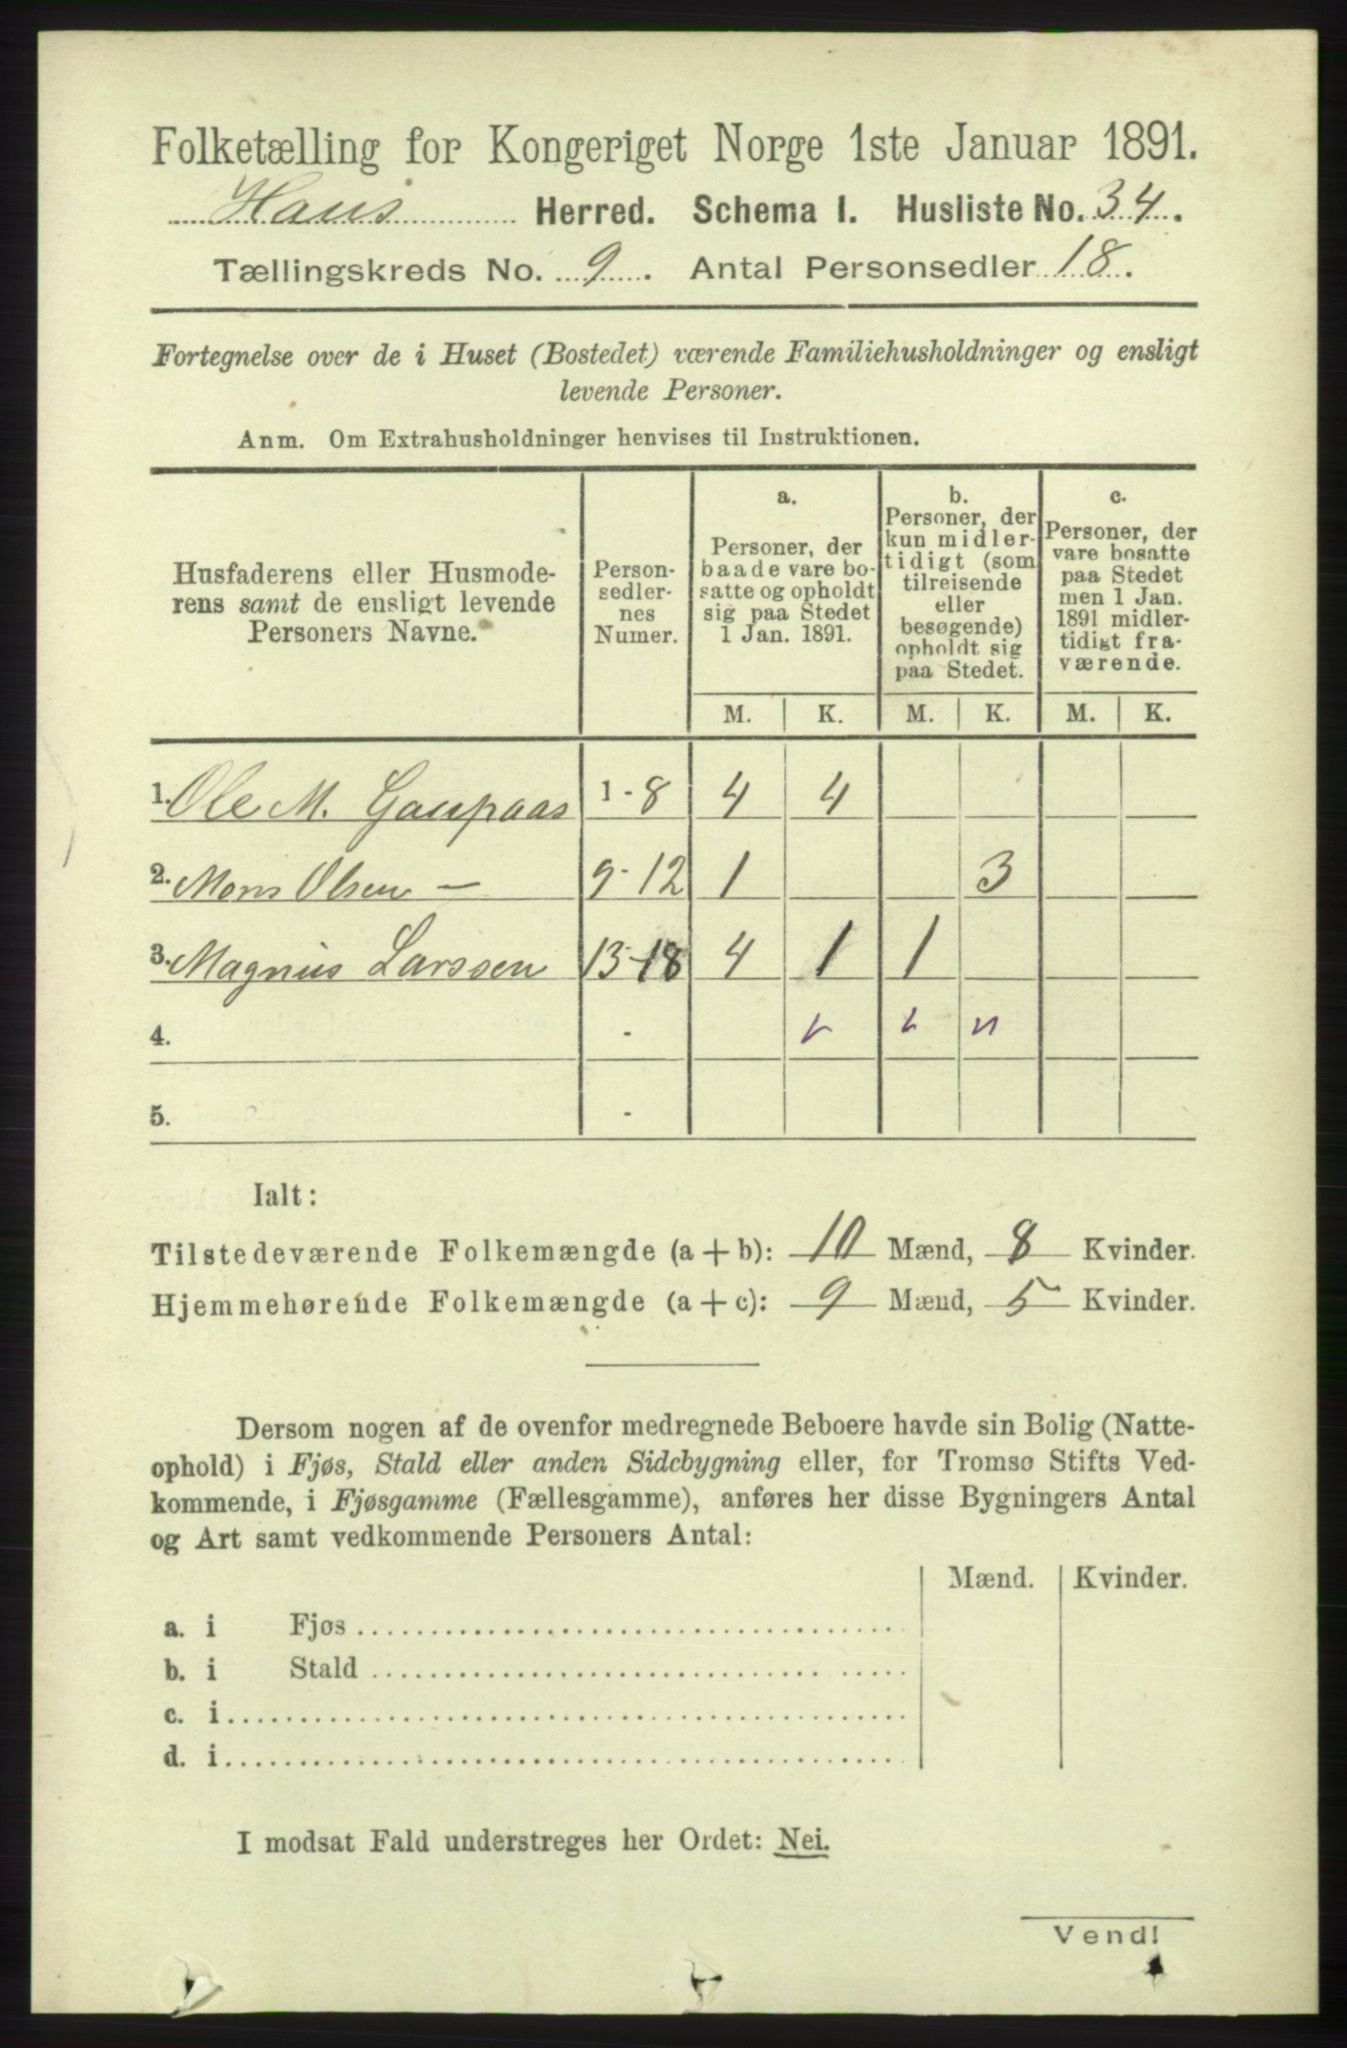 Folketælling for Kongeriget Norge 1ste Januar 1891.
Haus Herred. Schema I. Husliste No. 34.
Tællingskreds No. 9. Antal Personsedler 18.
Fortegnelse over de i Huset (Bostedet) værende Familiehusholdninger og ensligt
levende Personer.
Anm. Om Extrahusholdninger henvises til Instruktionen.
Husfaderens eller Husmode-
rens samt de ensligt levende
Personers Navne.
Person-
sedler-
nes
Numer.
a.
Personer, der
baade vare bo-
satte og opholdt
sig paa Stedet
1 Jan. 1891.
b.
Personer, der
kun midler-
tidigt (som
tilreisende
eller
besøgende)
opholdt sig
paa Stedet.
c.
Personer, der
vare bosatte
paa Stedet
men 1 Jan.
1891 midler-
tidigt fra-
værende.
M. K. M. K. M. K.
1. Ole M. Gaupaas 1-8 4 4
2. Mons Olsen — 9-12 1 3
3. Magnus Larssen 13-18 4 1 1
4. -
5. -
Ialt:
Tilstedeværende Folkemængde (a+b): 10 Mænd, 8 Kvinder.
Hjemmehørende Folkemængde (a+c): 9 Mænd, 5 Kvinder.
Dersom nogen af de ovenfor medregnede Beboere havde sin Bolig (Natte-
ophold) i Fjøs, Stald eller anden Sidebygning eller, for Tromsø Stifts Ved-
kommende, i Fjøsgamme (Fællesgamme), anføres her disse Bygningers Antal
og Art samt vedkommende Personers Antal:
Mænd. Kvinder.
a. i Fjøs
b. i Stald
c. i
d. i
I modsat Fald understreges her Ordet: Nei.
Vend!